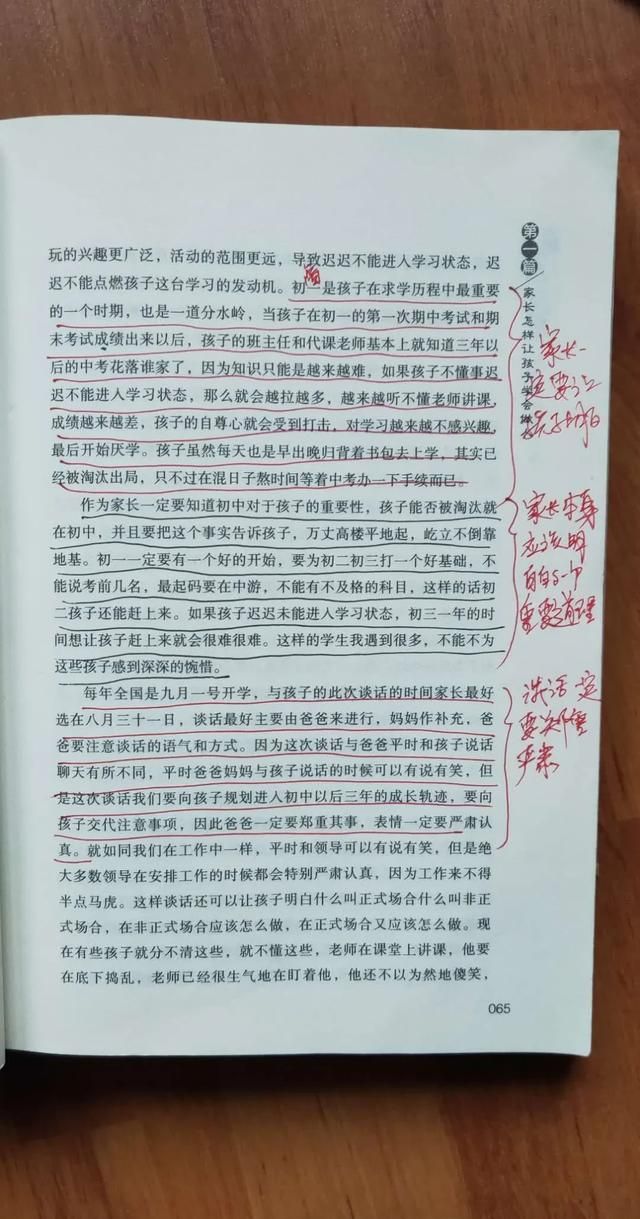 玩的兴趣更广泛，活动的范围更远，导致迟迟不能进入学习状态，迟
迟不能点燃孩子这台学习的发动机。初一是孩子在求学历程中最重要
的一个时期，也是一道分水岭，当孩子在初一的第一次期中考试和期
末考试成绩出来以后，孩子的班主任和代课老师基本上就知道三年以
后的中考花落谁家了，因为知识只能是越来越难，如果孩子不懂事迟
迟不能进入学习状态，那么就会越拉越多，越来越听不懂老师讲课，
成绩越来越差，孩子的自尊心就会受到打击，对学习越来越不感兴趣，
最后开始厌学。孩子虽然每天也是早出晚归背着书包去上学，其实已
经被淘汰出局，只不过在混日子熬时间等着中考办一下手续而已。
作为家长一定要知道初中对于孩子的重要性，孩子能否被淘汰就
在初中，并且要把这个事实告诉孩子，万丈高楼平地起，屹立不倒靠
地基。初一一定要有一个好的开始，要为初二初三打一个好基础，不
能说考前几名，最起码要在中游，不能有不及格的科目，这样的话初
二孩子还能赶上来。如果孩子迟迟未能进入学习状态，初三一年的时
间想让孩子赶上来就会很难很难。这样的学生我遇到很多，不能不为
这些孩子感到深深的惋惜。
每年全国是九月一号开学，与孩子的此次谈话的时间家长最好
选在八月三十一日，谈话最好主要由爸爸来进行，妈妈作补充，爸
爸要注意谈话的语气和方式。因为这次谈话与爸爸平时和孩子说话
聊天有所不同，平时爸爸妈妈与孩子说话的时候可以有说有笑，但
是这次谈话我们要向孩子规划进入初中以后三年的成长轨迹，要向
孩子交代注意事项，因此爸爸一定要郑重其事，表情一定要严肃认
真。就如同我们在工作中一样，平时和领导可以有说有笑，但是绝
大多数领导在安排工作的时候都会特别严肃认真，因为工作来不得
半点马虎。这样谈话还可以让孩子明白什么叫正式场合什么叫非正
式场合，在非正式场合应该怎么做，在正式场合又应该怎么做。现
在有些孩子就分不清这些，就不懂这些，老师在课堂上讲课，他要
在底下捣乱，老师已经很生气地在盯着他，他还不以为然地傻笑，
065
第一篇
家长怎样让孩子学会做
家长一
定要让
孩子明白
家长本身
应该明
白的一个
重要道理
谈话一定
要
严肃